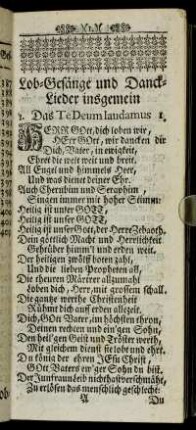 Lob-Gesänge und Danck-
Lieder insgemein
1. Das Te Deum laudamus 1.
HERR GOtt, dich loben wir,
HErr GOtt, wir dancken dir
Dich, Vater, in ewigkeit,
Ehret die welt weit und breit.
All Engel und himmels Heer,
Und was dienet deiner Ehr.
Auch Cherubim und Seraphim,
Singen immer mit hoher Stimm:
Heilig ist unser GOTT,
Heilig ist unser GOTT,
Heilig ist unser Gott, der Herre Zebaoth.
Dein göttlich Macht und Herrlichkeit
Geht über himm'l und erden weit.
Der heiligen zwölff boten zahl,
Und die lieben Propheten all,
Die theuren Märtrer allzumahl
Loben dich, Herr, mit grossem schall.
Die gantze werthe Christenheit
Rühmt dich auff erden allezeit.
Dich, GOtt Vater, im höchsten thron,
Deinen rechten und ein'gen Sohn,
Den heil'gen Geist und Tröster werth,
Mit gleichem dienst sie lobt und ehrt.
Du könig der ehren JEsu Christ,
GOtt Vaters ew'ger Sohn du bist.
Der Jungfraun leib nicht hast verschmäht,
Zu erlösen das menschlich geschlecht:
A Du
387